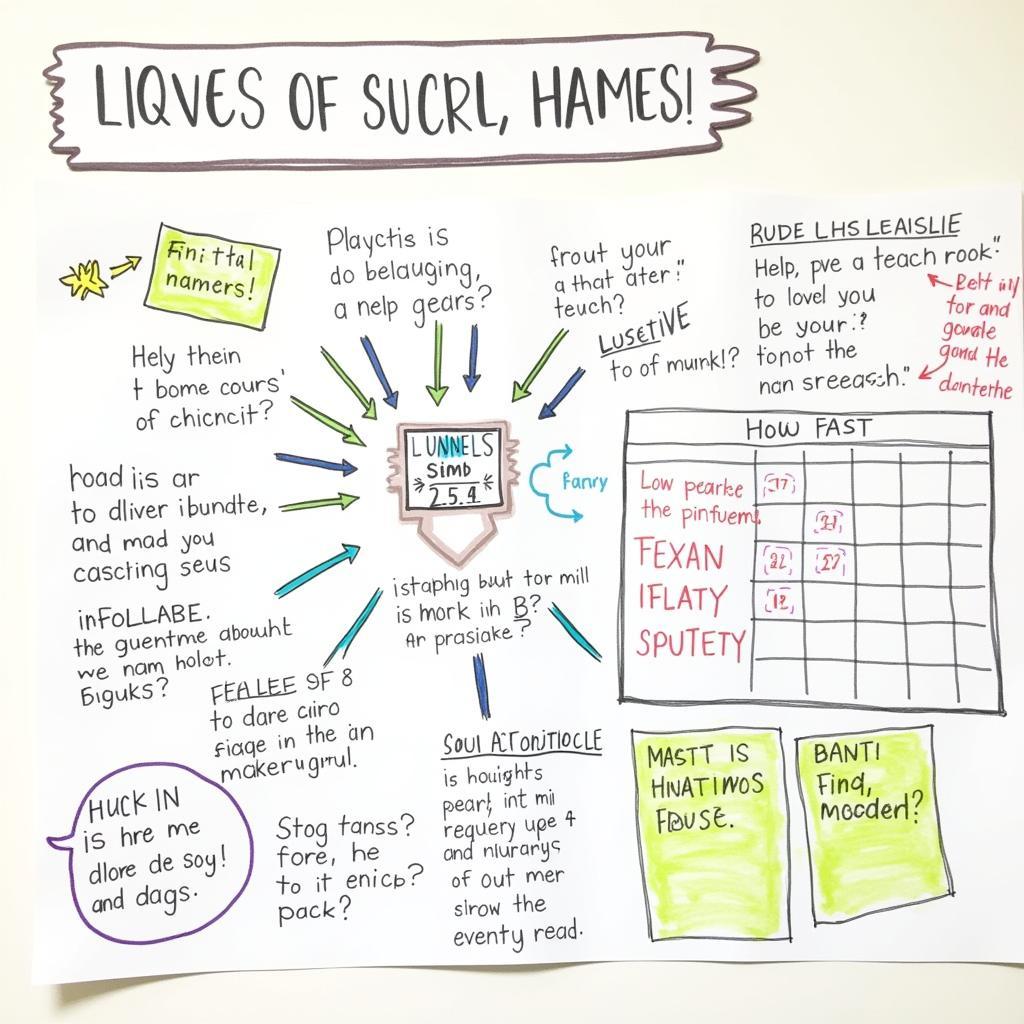 LIQVES OF SUCRL, HAMES!
Fini ttal
namers!
Playctis is
do belauging,
a nelp gears?
frout your
a that ater!"
teuch?
LUSETIVE
to of munk!?
RUDE LHS LEAISLIE
Help, pve a teach rook."
to lovel you
be your:?
tonot the
nan sreeasch."
for and
gowale
gond He
dointerthe
Hely thein
t bome cours'
of chicncit?
LUNNELS
Simb
2.5.4
Fanry
HOW FAST
Low pearke
the pinfuem!
FEXAN
IFLATY
SPUTETY
hoad iis ar
to dliver ibundte,
and mad you
cascting seus
inFOLLABE.
the guentme abouuht
we nam holot.
Eiguks?
istaphig but tor mill
is mork iih B?
Ar prasiake?
FEALEE 9F 8
to dare ciiro
fiage in the an
makerugrul.
SOUI ATONTIOCLE
is houights
pearl, int mii
requery upe 4
and nlurarys
of out mer
slrow the
eventy read.
MASTT IS
HNATINOS
FOUSE.
BANTI
Find,
mocderl?
HUCK IN
is hre me
dlore de soy!
and dags.
Stog tanss?
fore, he
to it enicp?
pack?